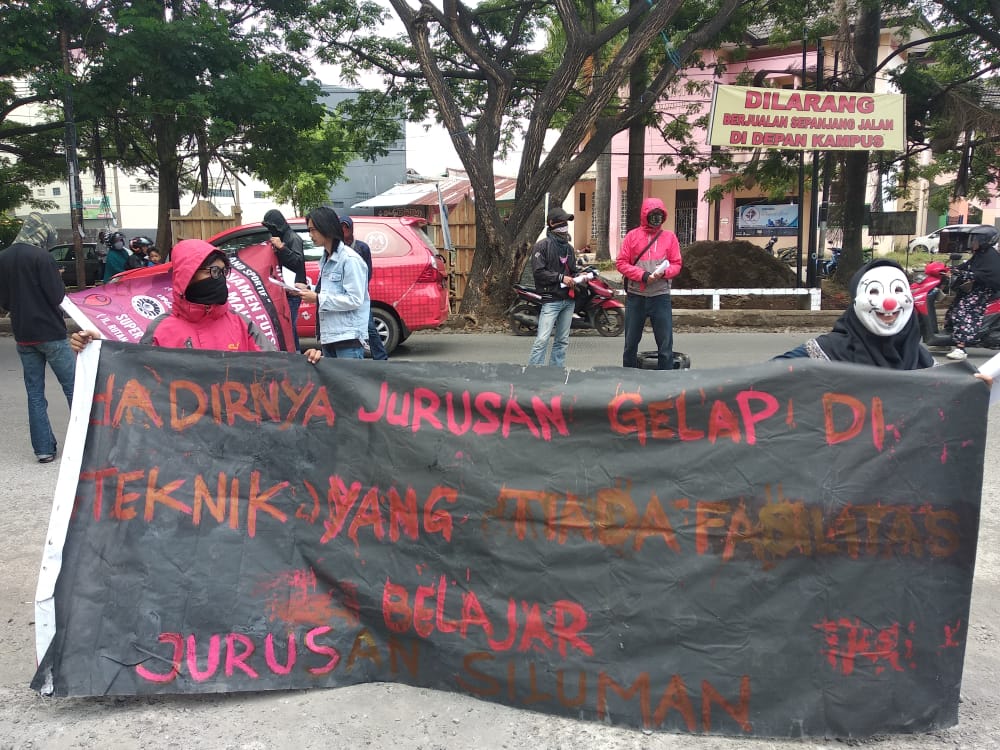 DILARANG
BERJUALAN SEPANJANG JALAN
DI DEPAN KAMPUS
HADIRNYA JURUSAN GELAP DI
TEKNIK YANG TIADA FASILITAS
BELAJAR
JURUSAN SILUMAN
SUPER